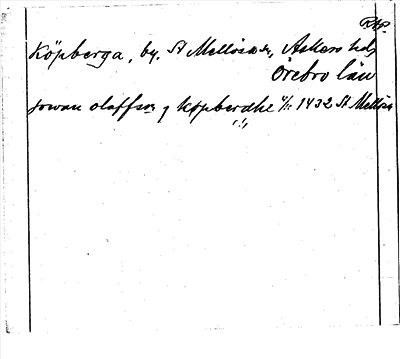 RAP.
Köpberga, by. St Mellösa sn, Askers hd,
Örebro län
jowan olaffson j køpberghe 4/1 1432 St Mellösa